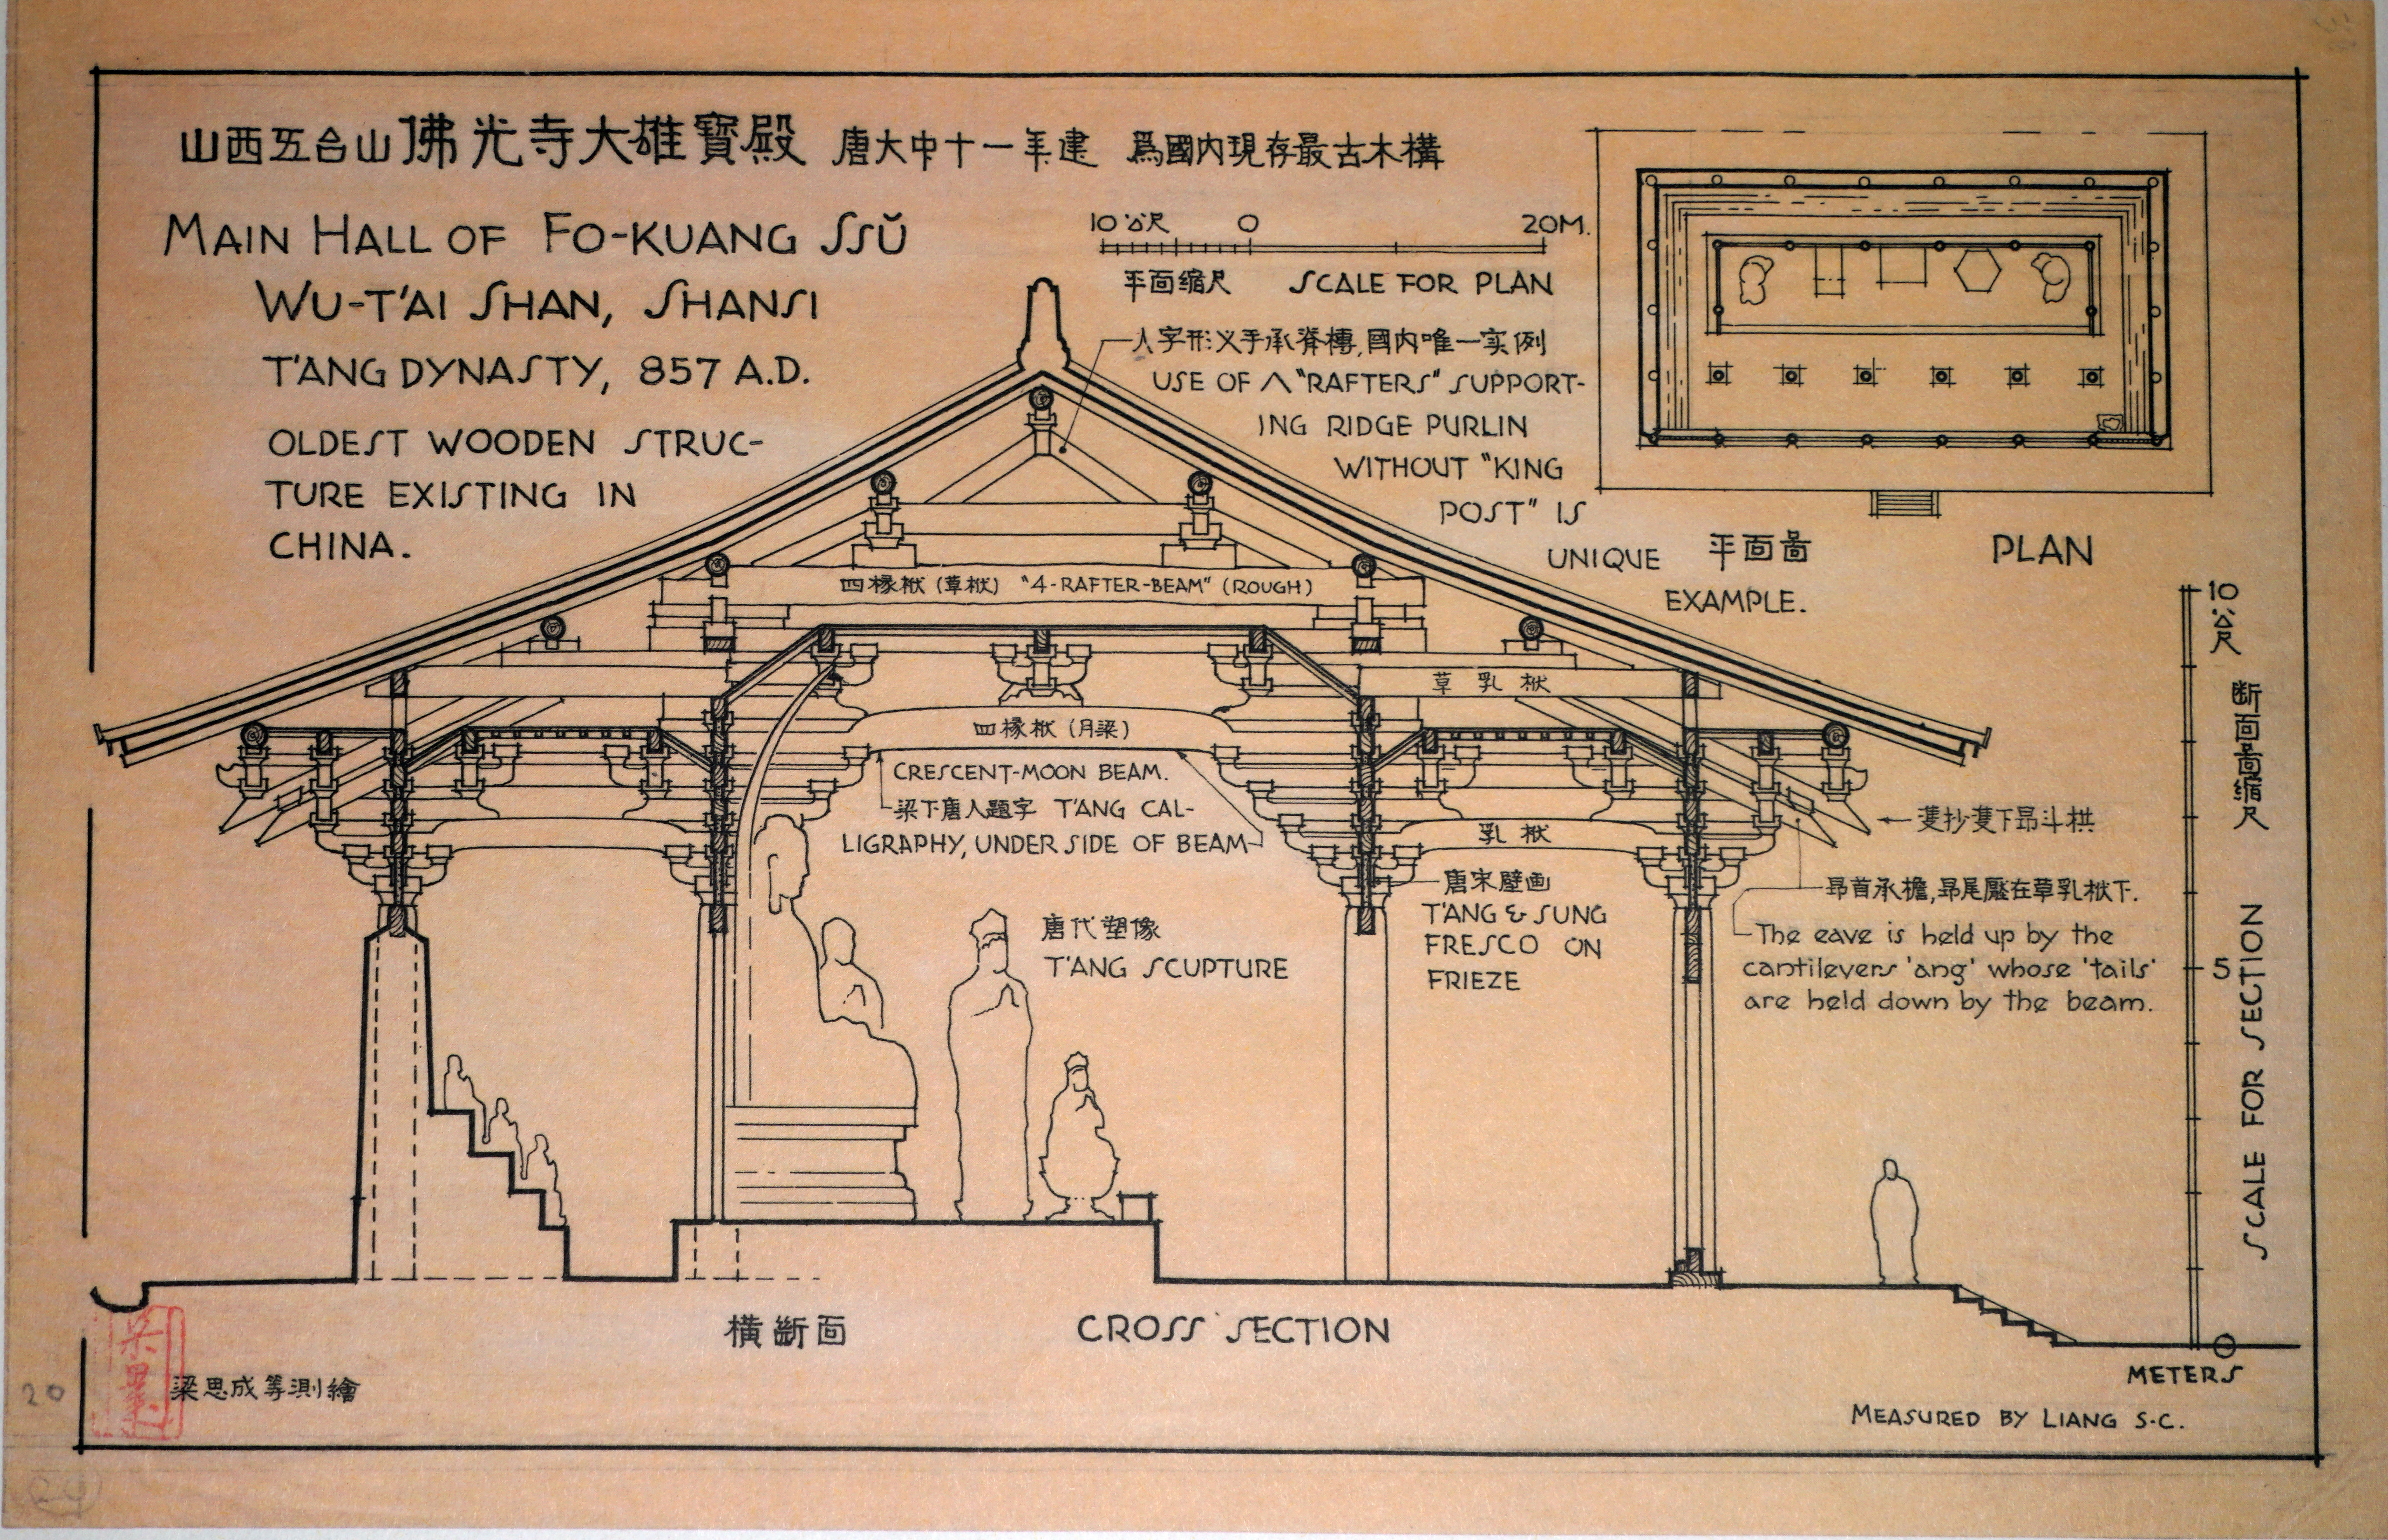 山西五台山佛光寺大雄寶殿 唐大中十一年建 爲國内現存最古木構
MAIN HALL OF FO-KUANG SSŬ
WU-T'AI SHAN, SHANSI
T'ANG DYNASTY, 857 A.D.
OLDEST WOODEN STRUC-
TURE EXISTING IN
CHINA.
10公尺 0 20M.
平面缩尺 SCALE FOR PLAN
人字形义手承脊槫,國内唯一实例
USE OF Λ "RAFTERS" SUPPORT-
ING RIDGE PURLIN
WITHOUT "KING
POST" IS
UNIQUE
EXAMPLE.
平面啚 PLAN
四椽栿(草栿) "4-RAFTER-BEAM" (ROUGH)
草乳栿
四椽栿(月梁)
CRESCENT-MOON BEAM.
梁下唐人題字 T'ANG CAL-
LIGRAPHY, UNDER SIDE OF BEAM
乳栿
唐代塑像
T'ANG SCUPTURE
唐宋壁画
T'ANG & SUNG
FRESCO ON
FRIEZE
雙抄雙下昂斗栱
昂首承檐,昂尾壓在草乳栿下.
The eave is held up by the
cantilevers 'ang' whose 'tails'
are held down by the beam.
10公尺
5
0
断面高缩尺
SCALE FOR SECTION
METERS
横断面 CROSS SECTION
梁思成等測繪
MEASURED BY LIANG S-C.
20